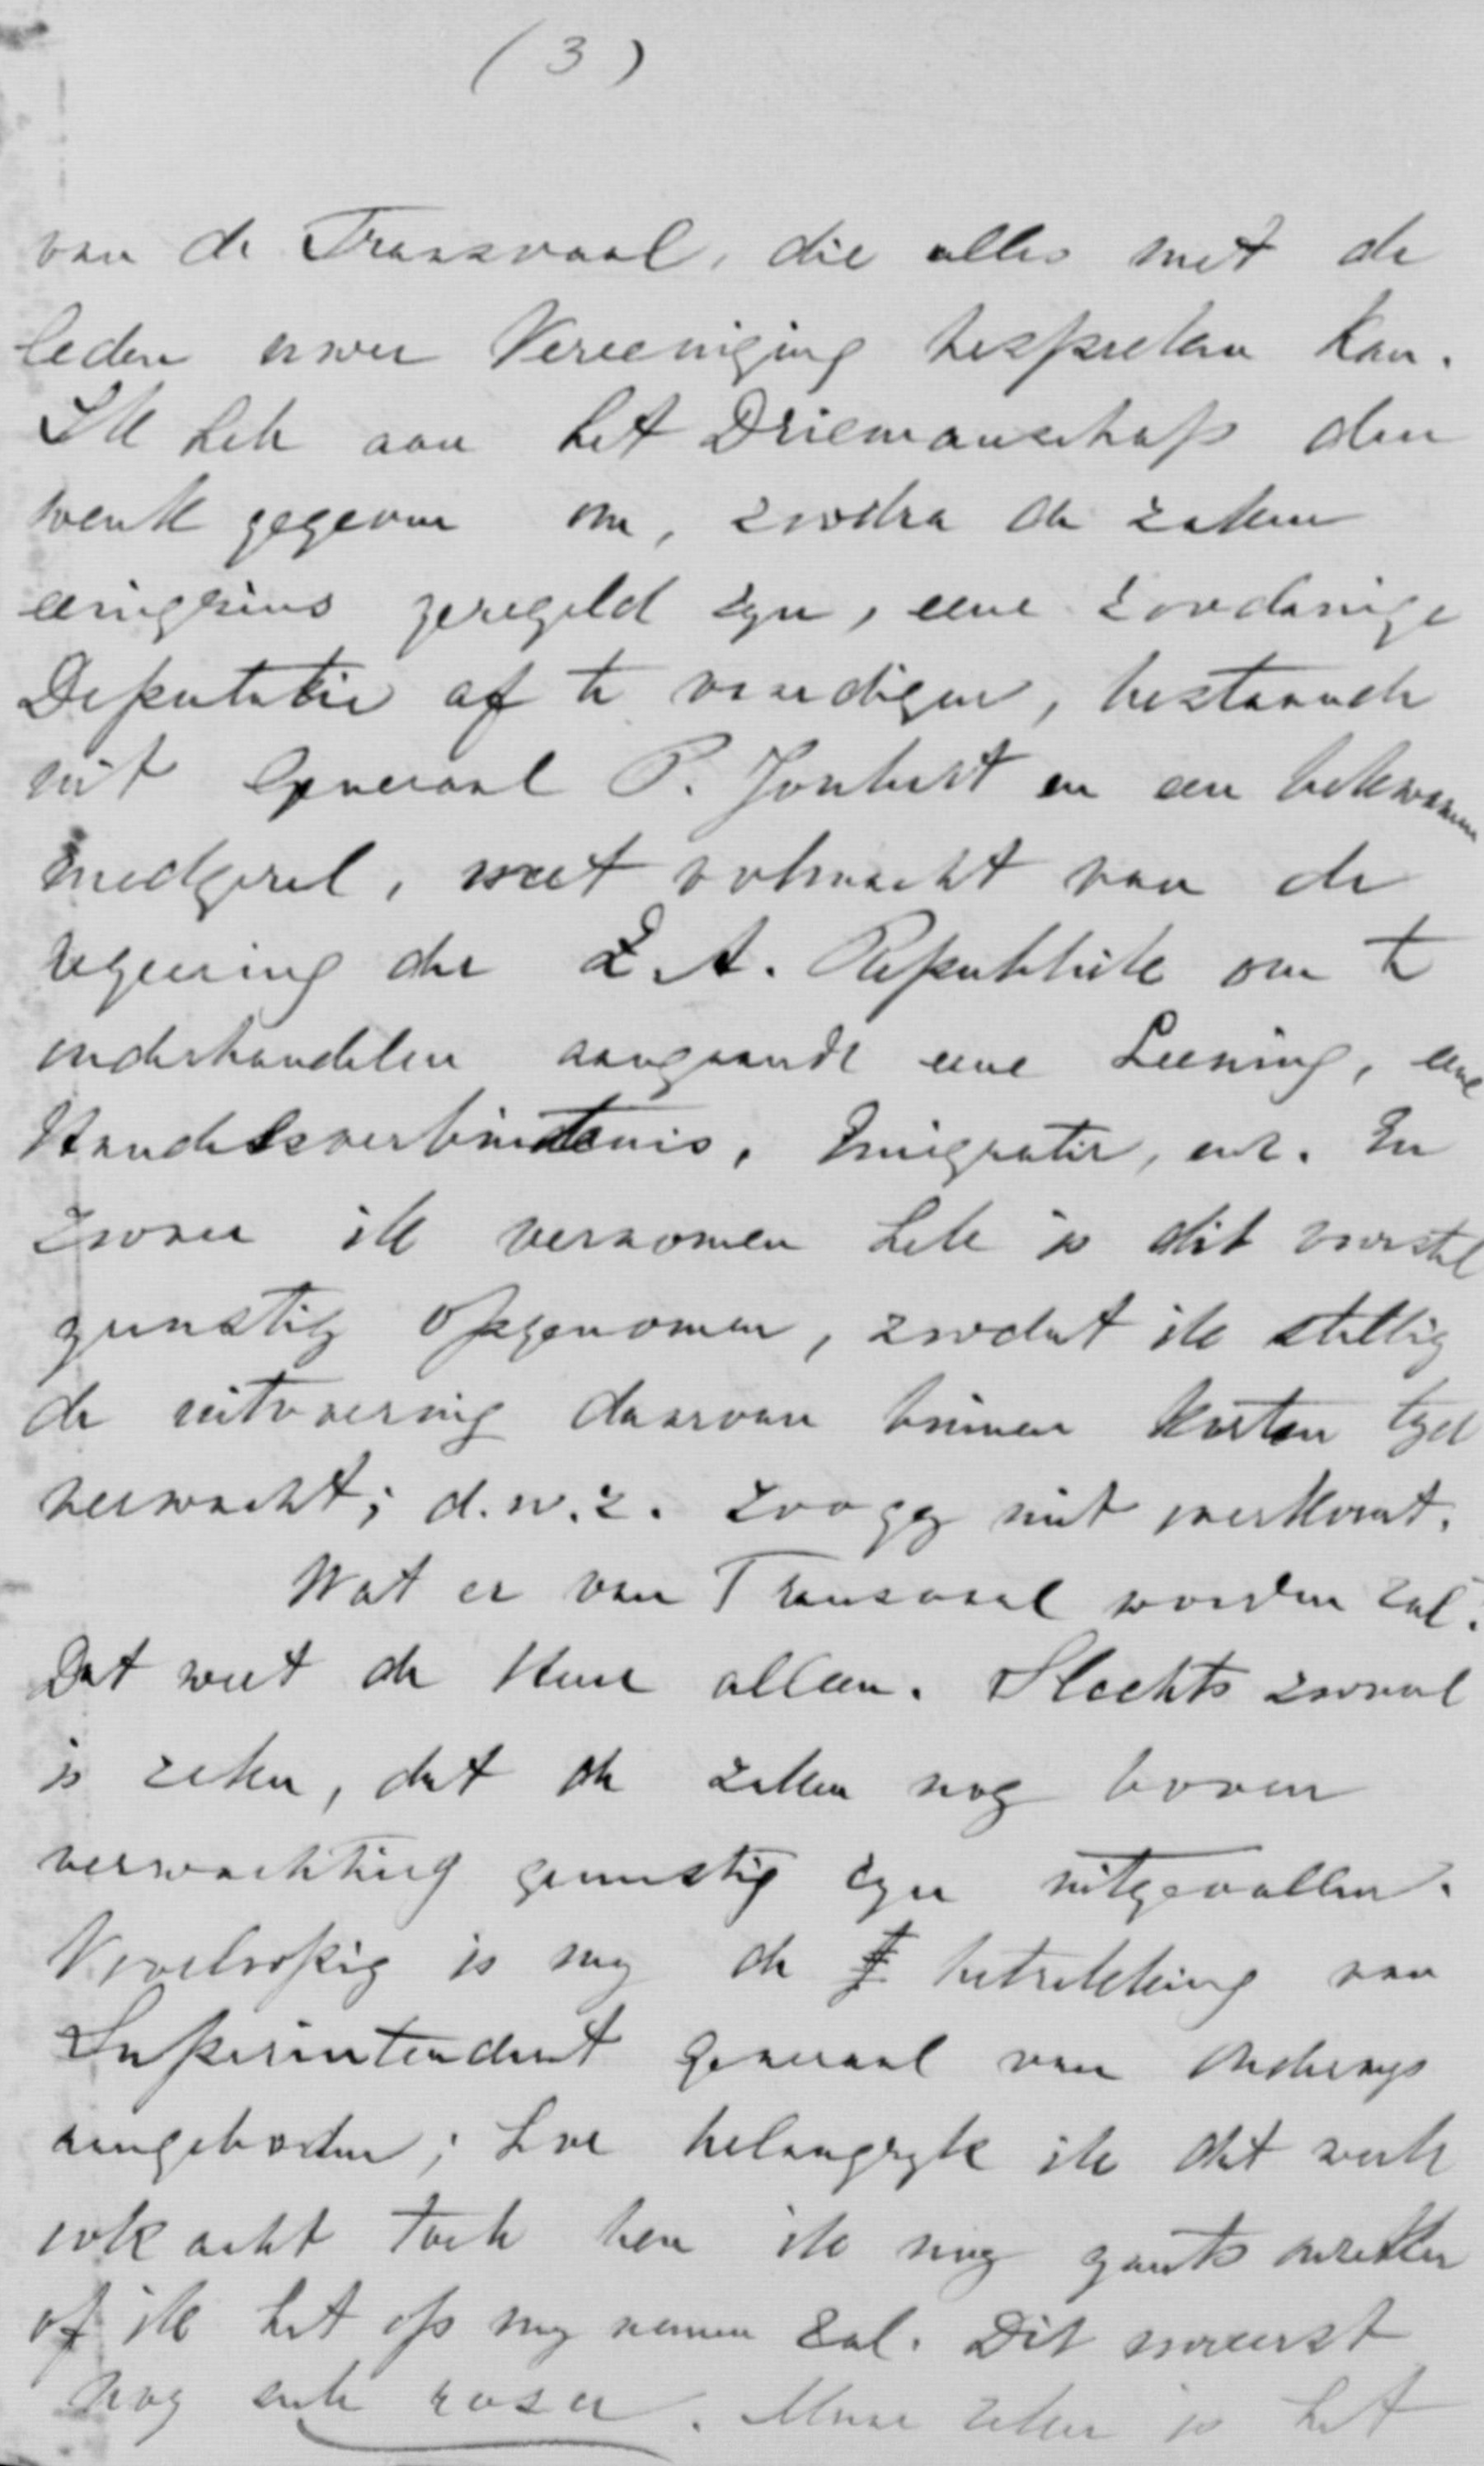 (3)
van de Transvaal, die alles met de
leden uwer Vereeniging bespreken kan.
Ik heb aan het Driemanschap den
wenk gegeven om, zoodra de zaken
eenigzins geregeld zyn, eene zoodanige
Deputatie af te vaardigen, bestaande
uit Generaal P. Joubert en een bekwamen
medgezel, met volmacht van de
regeering der Z. A. Republiek om te
onderhandelen aangaande eene Leening, eene
Handelsverbindtenis, Emigratie, enz. En
zoover ik vernomen heb is dit voorstel
gunstig opgenomen, zoodat ik stellig
de uitvoering daarvan binnen korten tyd
verwacht; d.w.z. zoo gy niet overkomt.
Wat er van Transvaal worden zal?
Dat weet de Heer alleen. Slechts zooveel
is zeker, dat de zaken nog boven
verwachting gunstig zyn uitgevallen.
Voorloopig is my de betrekking van
Superintendent generaal van Onderwys
aangeboden; hoe belangryk ik dat werk
ook acht toch ben ik nog gants onzeker
of ik het op my nemen zal. Dit vooreerst
nog sub rosa. Maar zeker is het